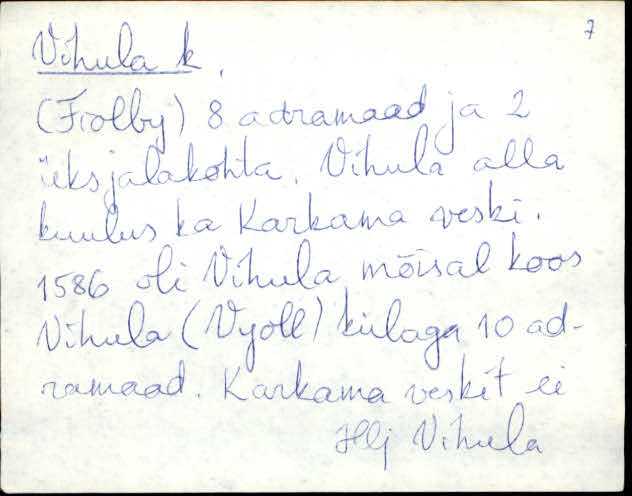 7
Vihula k.
(Fiolby) 8 adramaad ja 2
üksjalakohta. Vihula alla
kuulus ka Karkama veski.
1586 oli Vihula mõisal koos
Vihula (Vyoll) külaga 10 ad-
ramaad. Karkama veskit ei
Hlj Vihula